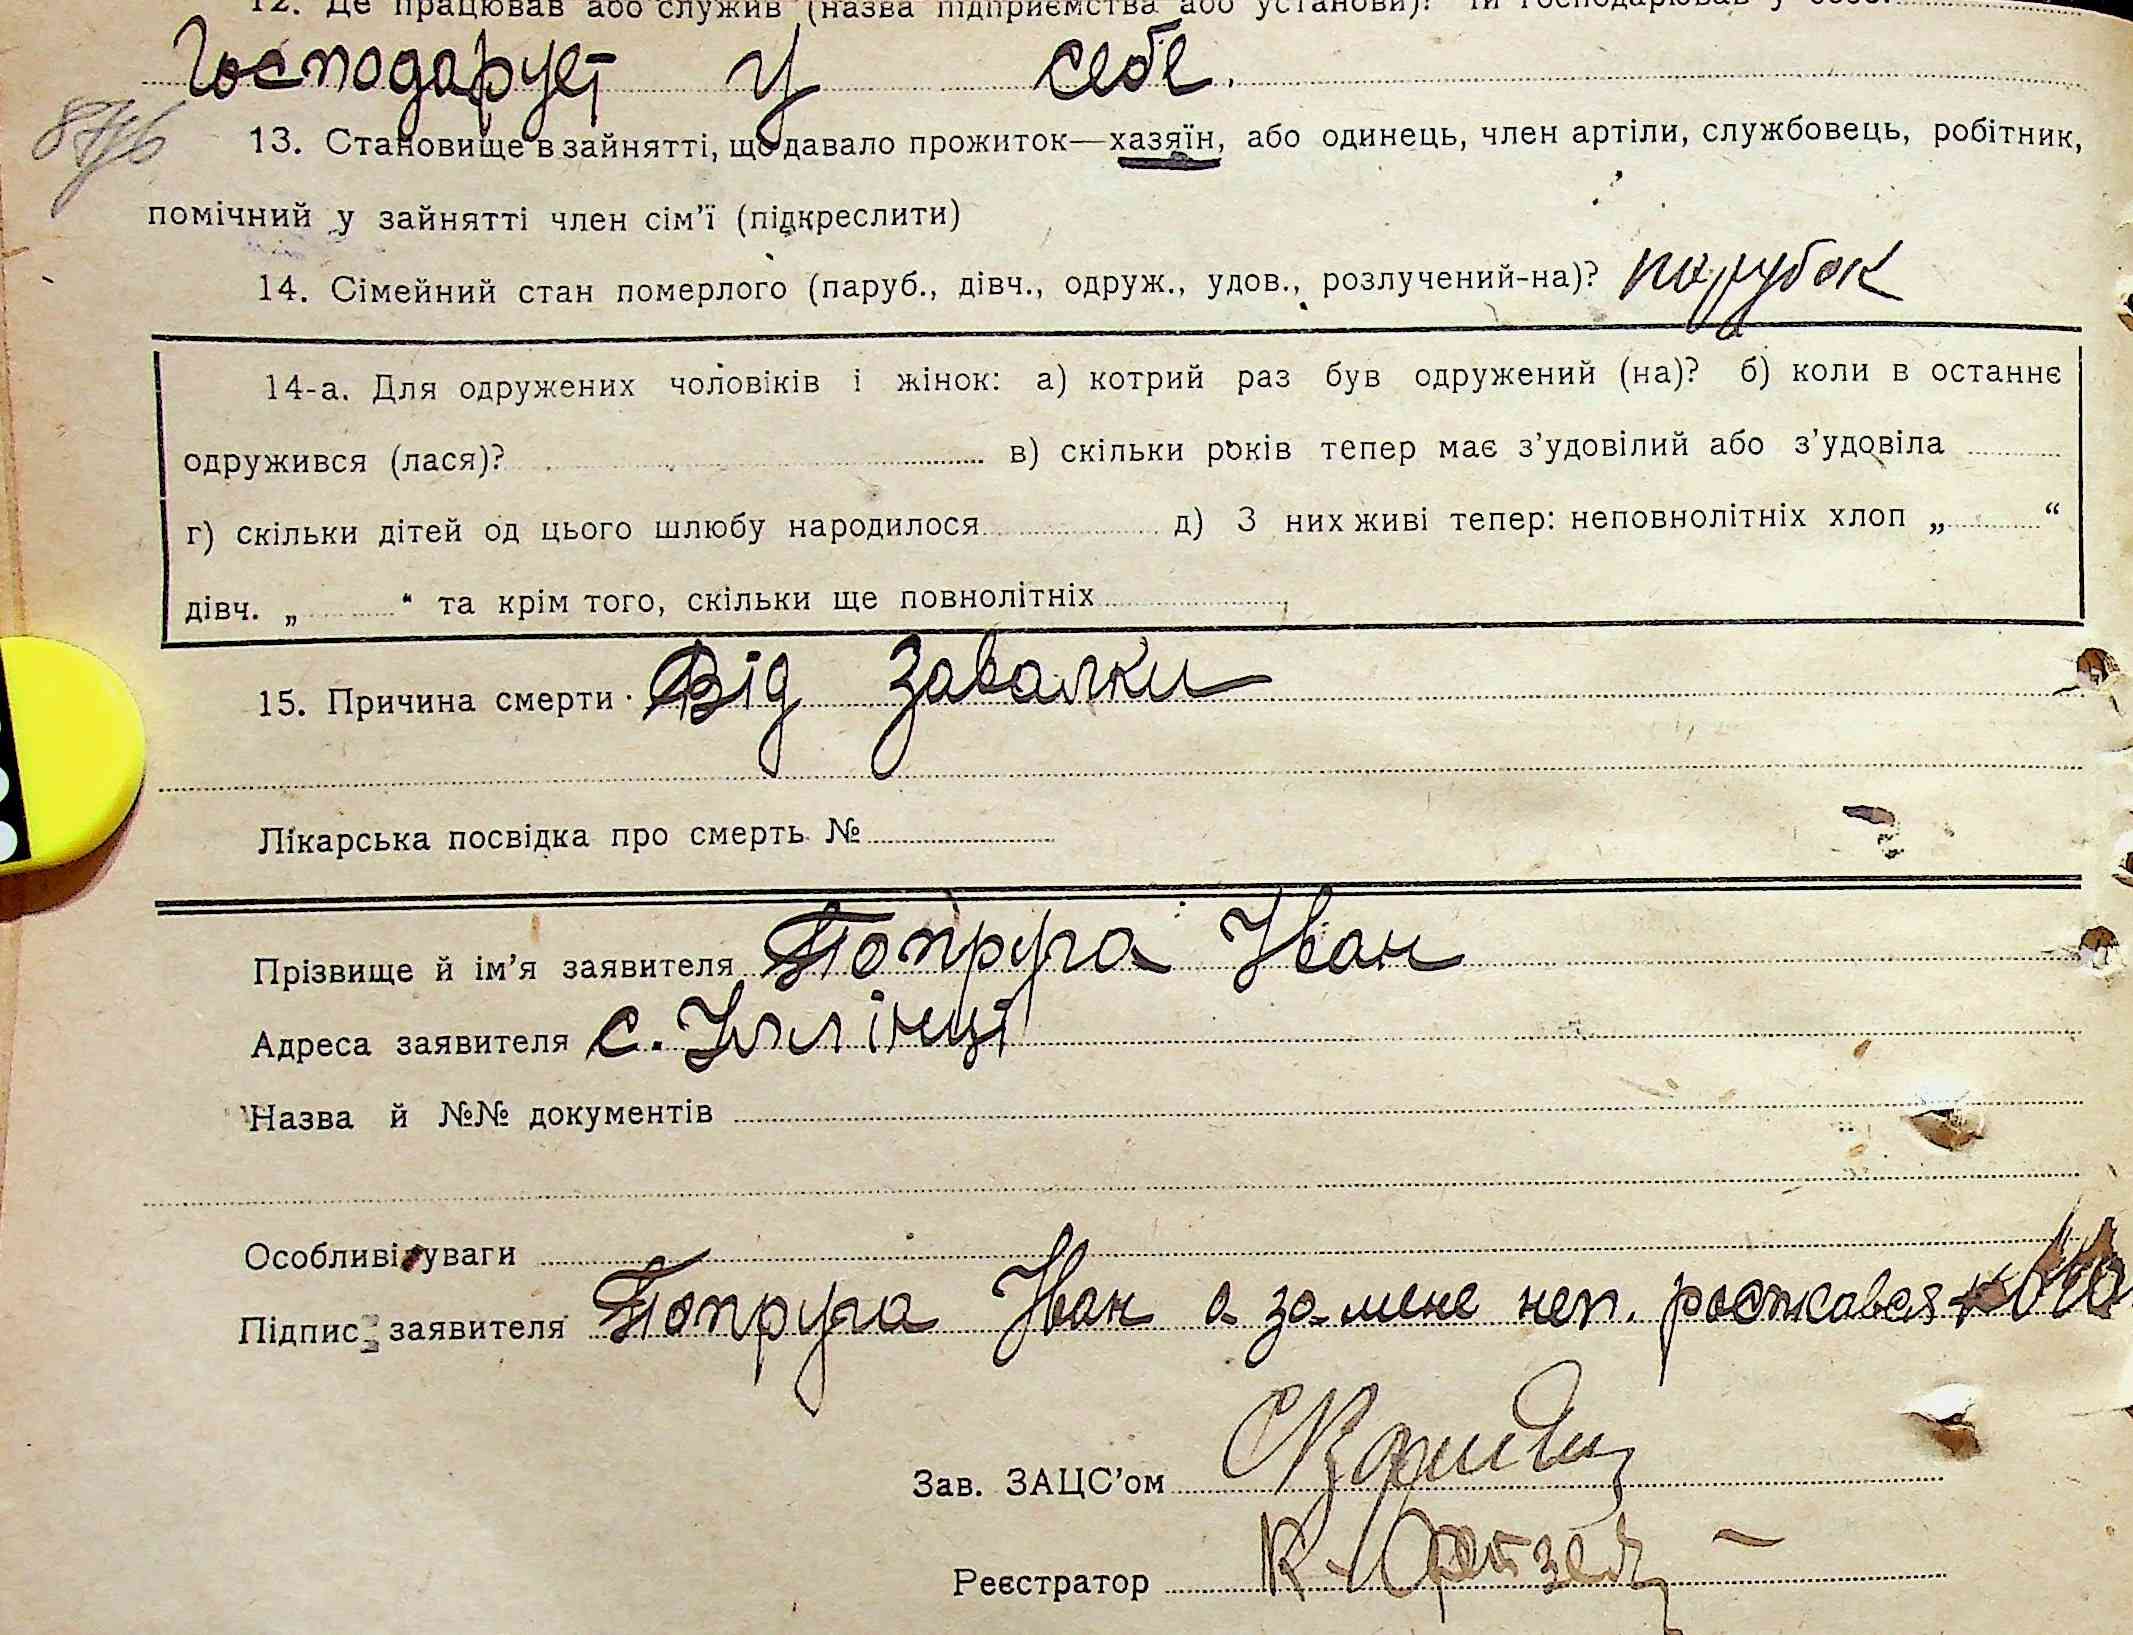 12. Де працював або служив (назва підприємства або установи)? Чи господарював у себе.
Господарует у себе.
13. Становище в зайнятті, що давало прожиток—хазяїн, або одинець, член артіли, службовець, робітник,
помічний у зайнятті член сім’ї (підкреслити)
14. Сімейний стан померлого (паруб., дівч., одруж., удов., розлучений-на)? парубок
14-а. Для одружених чоловіків і жінок: а) котрий раз був одружений (на)? б) коли в останнє
одружився (лася)? в) скільки років тепер має з’удовілий або з’удовіла
г) скільки дітей од цього шлюбу народилося д) З них живі тепер: неповнолітніх хлоп „ “
дівч. „ “ та крім того, скільки ще повнолітніх
15. Причина смерти Від Завалки
Лікарська посвідка про смерть №
Прізвище й ім’я заявителя Попруга Іван
Адреса заявителя с.
Назва й №№ документів
Особливі уваги
Підпис заявителя Попруга Іван а за мене неп.
Зав. ЗАЦС’ом
Реєстратор